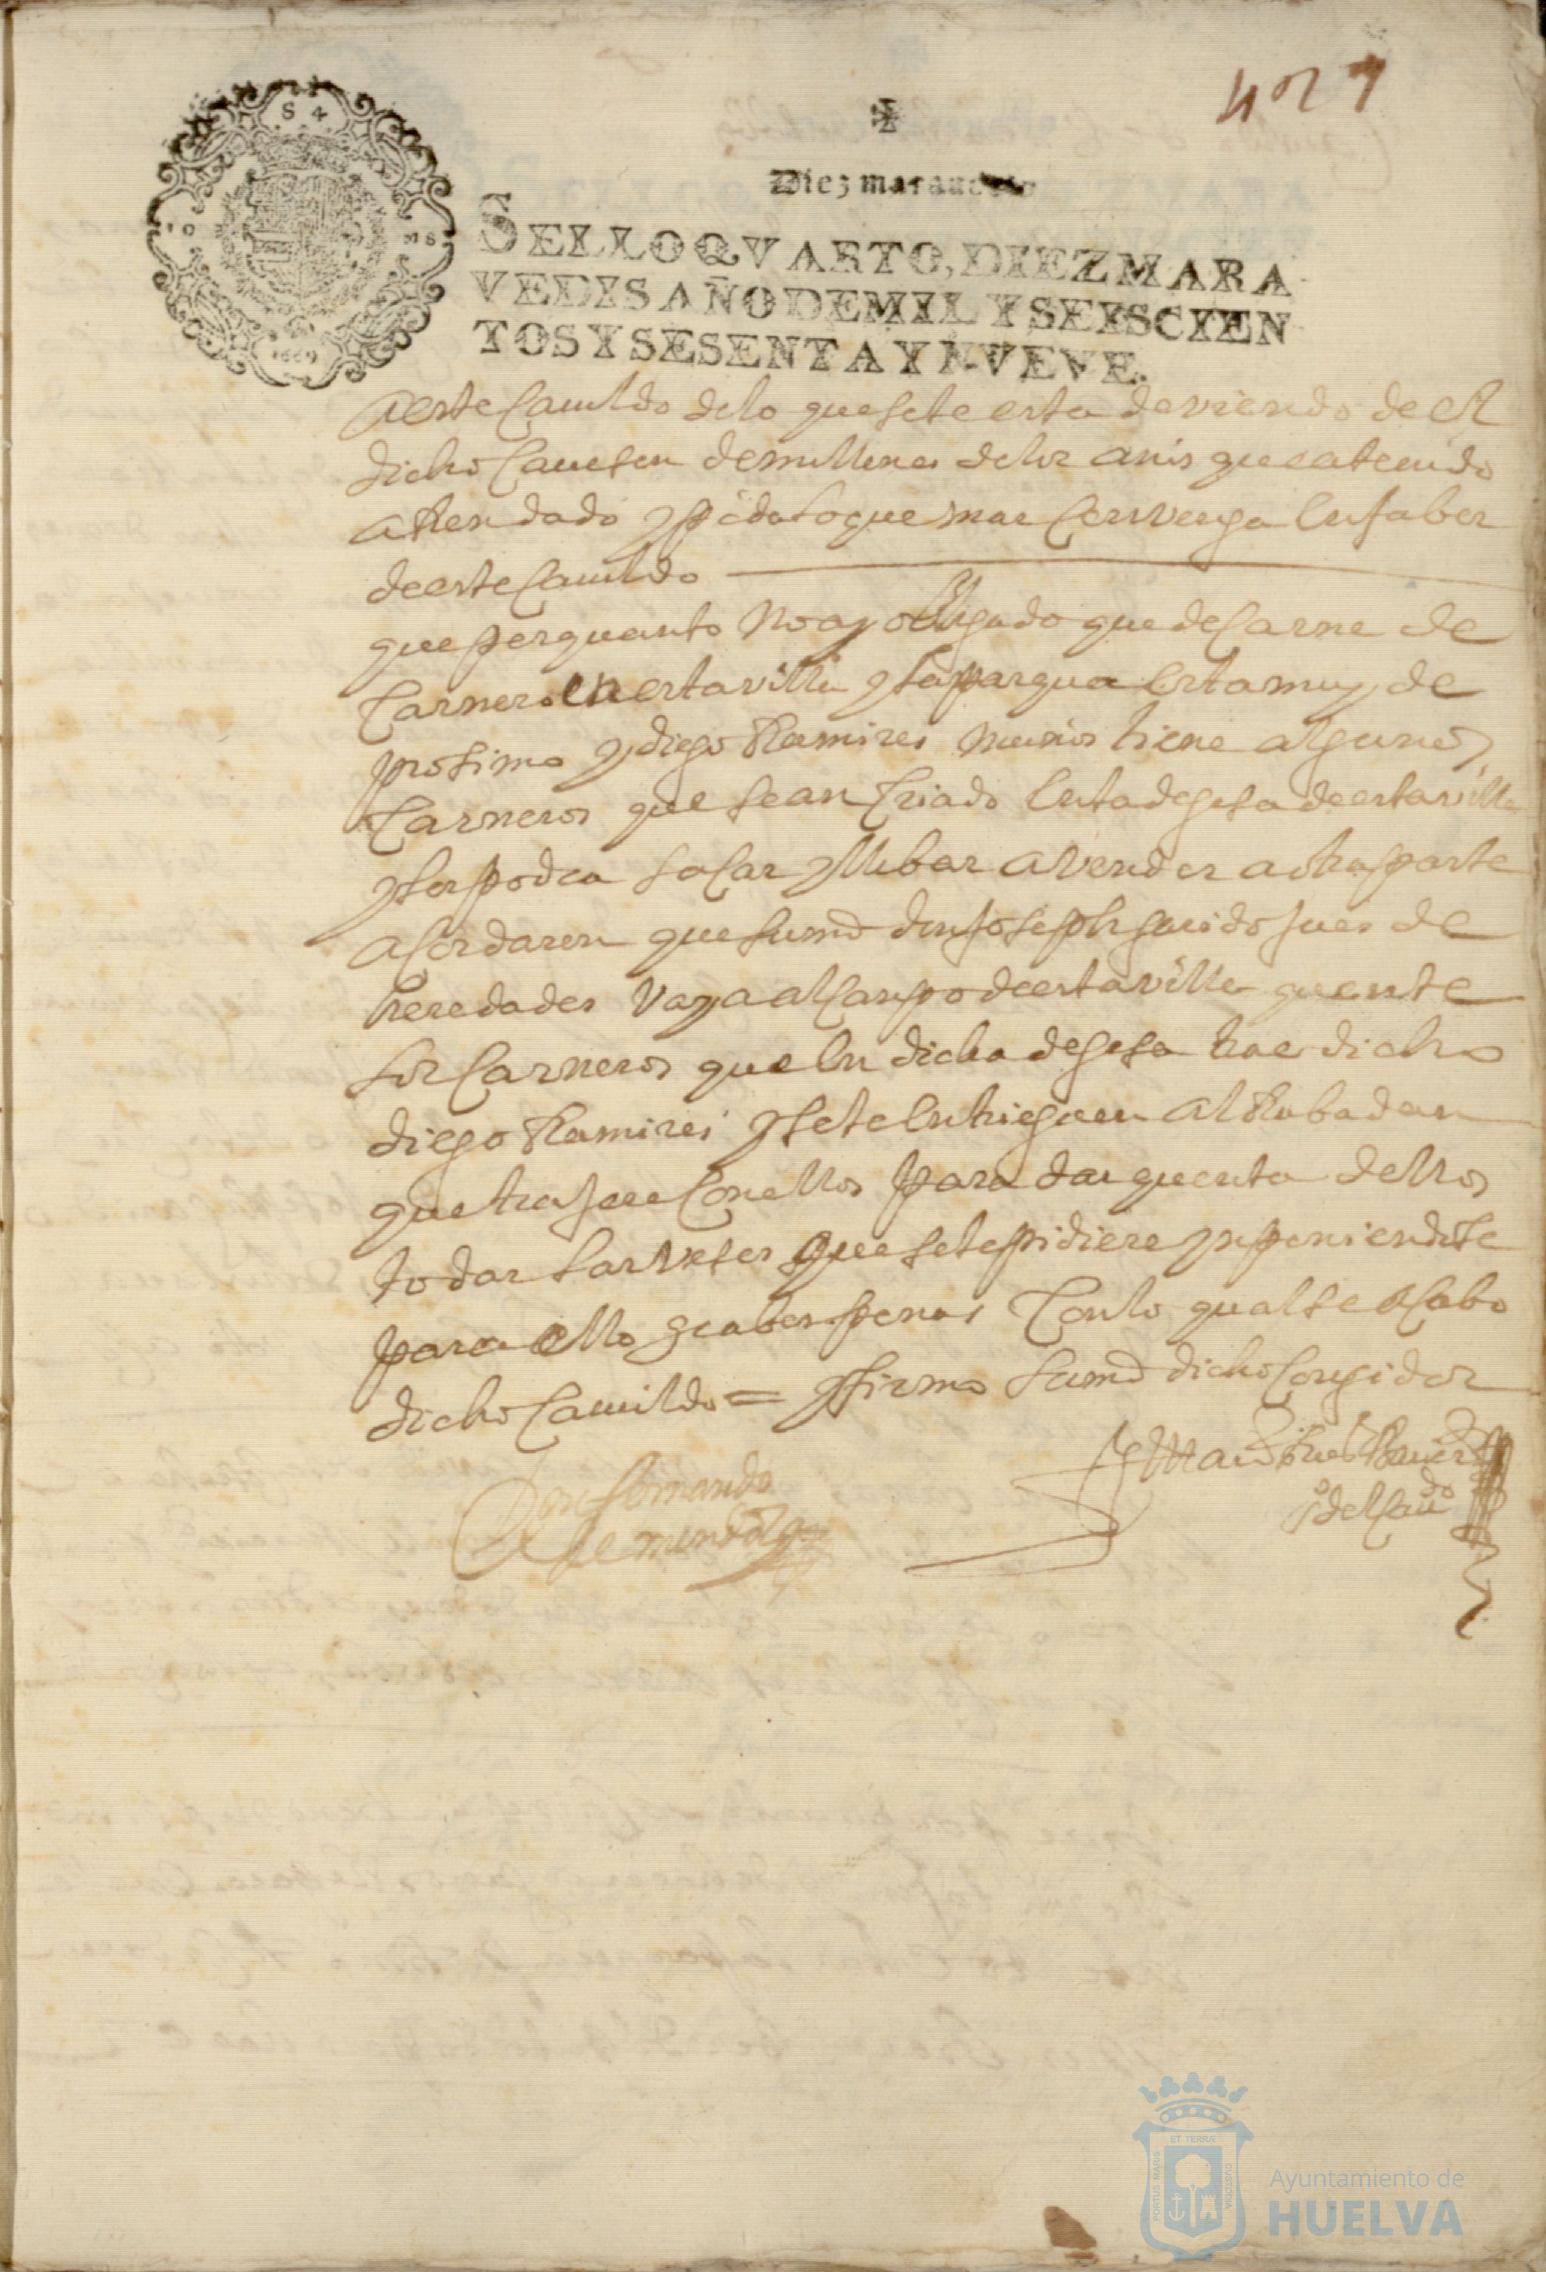 4027
Diez marauedis
SELLO QVARTO, DIEZ MARA
VEDIS AÑO DE MIL Y SEISCIEN
TOS Y SESENTA Y NVEVE.
S 4
10 MS
1669
a este Cauildo de lo que se le esta deviendo de el
dicho Caueson de millones de los anis que a tenido
aRendado y pida lo que mas Conuenga en fabor
de este Cauildo
que por quanto no ay obligado que de Carne de
Carnero en esta villa y la pasqua esta muy de
prosimo y diego Ramires munis tiene algunos
Carneros que se an Criado en la degesa de esta villa
y los podra sacar y llebar a vender a otra parte
acordaron que su md don Joseph garrido Jues de
heredades vaya al Campo de esta villa quente
los Carneros que en dicha degesa trae dicho
diego Ramires y se le entrieguen al Rabadan
que trajere Con ellos para dar quenta dellos
todas las veses que se le pidiere ynponiendole
para ello grabes penas Con lo qual se acabo
dicho Cauildo = y firmo su md dicho Corregidor
Don fernando
de mendoza
del Caudo
ET TERRÆ
PORTUS MARIS
CUSTODIA
Ayuntamiento de
HUELVA